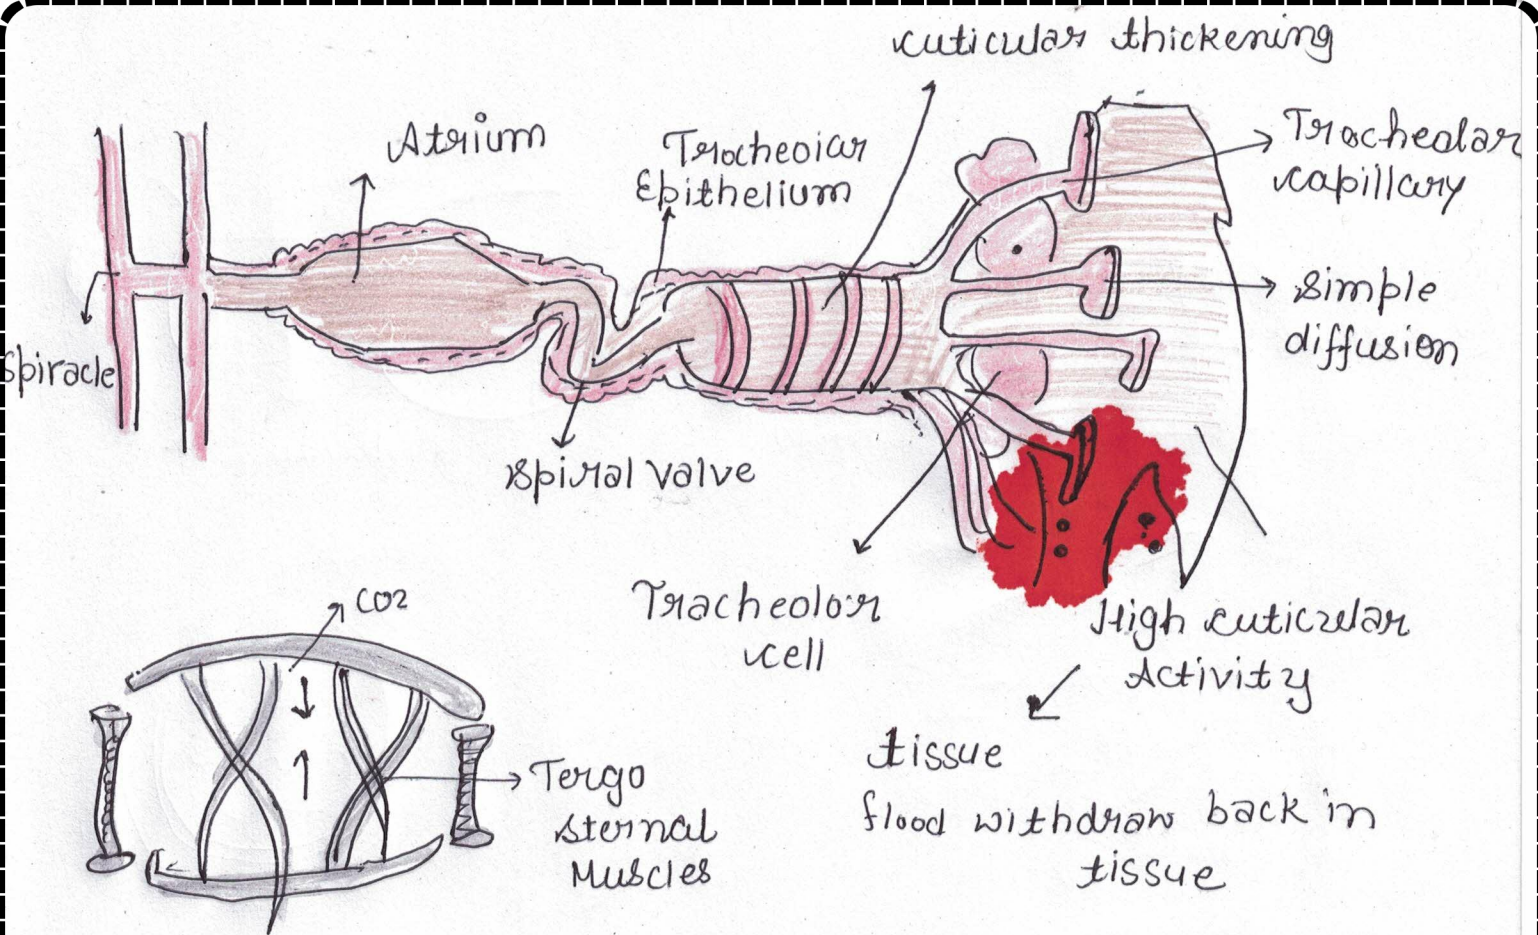 cuticular thickening
Atrium
Tracheoiar
Epithelium
Tracheolar
capillary
simple
diffusion
Spiracle
spiral valve
Tracheolor
cell
High cuticular
Activity
tissue
flood withdraw back in
tissue
CO2
Tergo
sternal
Muscles